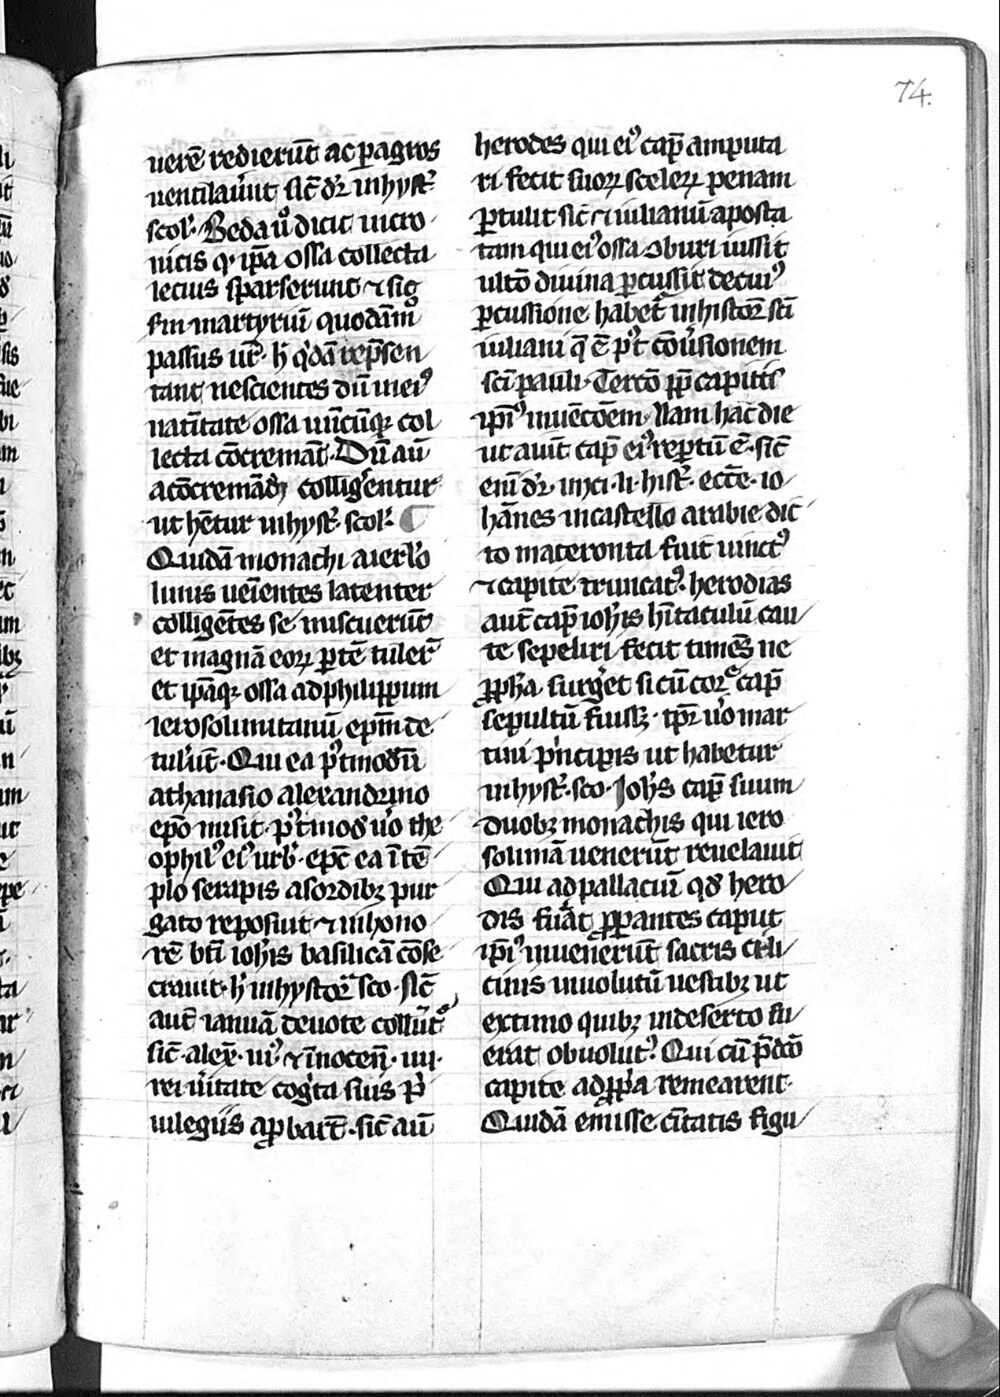 74.
uerē redierūt ac ꝑ agros
uentilauꝰunt sic̄ dr̄ in hyst᷑
scol᷑. Beda ū̊ dicit in cro
nicis ꝙ ip̄a ossa collecta
lecius sparserunt ⁊ sic
s̄m martyriū quodam̊
passus ur̄. h̄ q̇dā rep̄sen
tant nescientes dū in eiꝰ
natiītate ossa undiqꝫ col
lecta cōcremāt. Dū aū
a ꝯcremādꝫ colligerentur
ut hētur in hyst᷑. scol᷑. ¶
Quidā monachi a ierl̄o
limis uenientes latenter
colligētes se miscuerūt
et magnā eoꝝ ꝑtē tuler᷑
et ip̄aqꝫ ossa ad philippum
ierosolimitanū ep̄m de
tulerūt. Qui ea p̊tmodū
athanasio alexandrino
ep̄o misit. p̊tmod u̇o the
ophilꝰ eiꝰ urb̄. ep̄c ea ī tē
plo serapis a sordibꝫ pur
gato reposuit ⁊ in hono
rē bt̄i ioh̄is basilicā cōse
crauit. h̄ in hystoꝝ sco. sic̄
aut̄ ianuā deuote collūt᷑
sic̄ alex̄. iij. ⁊ īnocen̄. iiij.
rei ueritate cogᷓta suis p̄
uilegiis aꝓbart̄. sic̄ aū
herodes qui eiꝰ cap̄ amputa
ri fecit suoꝝ sceleꝝ penam
ꝑtulit sic̄ ⁊ iulianū aposta
tam qui eiꝰ ossa ꝯburi iussit
ultō diuina ꝑcussit de cuiꝰ
ꝑcussione habet᷑ in histor̄ sc̄i
iuliani q̄ ē p̊t cōuersionem
sc̄i pauli. Tercō ꝓp̄ capitis
ip̄iꝰ inuēcōem. Nam hac die
ut aiūt cap̄ eiꝰ reꝑtū ē. sic̄
eni dr̄ in xi. li. hist᷑. ecc̄e. io
hānes in castello arabie dic
to materonta fuit uinctꝰ
⁊ capite truncatꝰ. herodias
aut̄ cap̄ ioh̄is hītaculū cau
te sepeliri fecit timēs ne
ꝓph̄a surgeret si cū cor̄e cap̄
sepultū fuissꝫ. tp̄r u̇o mar
tini p̊ncipis ut habetur
in hyst᷑. sco. Joh̄s cap̄ suum
duobꝫ monachis qui iero
solimā uenerūt reuelauit
Qui ad pallaciū qd̄ hero
dis fuāt ꝓꝑantes caput
ip̄iꝰ inuenerūt sacris cili
cinis inuolutū uestibꝫ ut
extimo quibꝫ in deserto fu
erat obuolutꝰ. Qui cū p̄dc̄o
capite ad ꝓpͥa remearent.
Quidā emisse ciuitatis figu